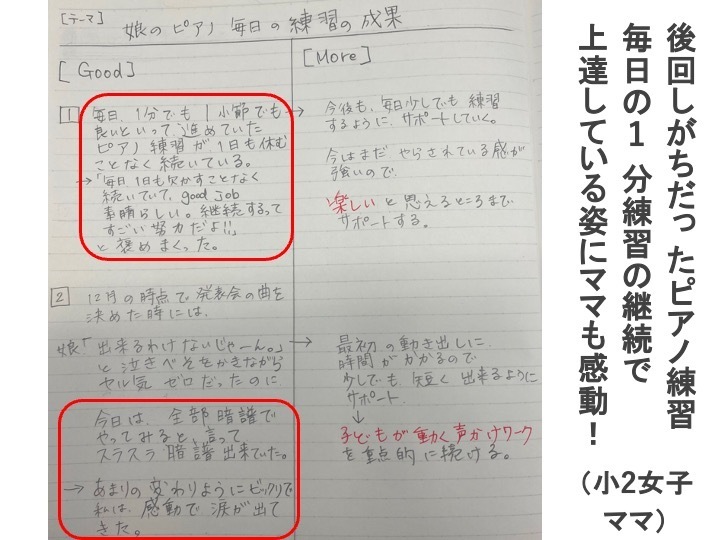 [テーマ] 娘のピアノ毎日の練習の成果
[Good]
1 毎日、1分でも1小節でも
良いといって進めていた
ピアノ練習が1日も休む
ことなく続いている。
→「毎日1日も欠かすことなく
続いていて、good job
素晴らしい。継続するって
すごい努力だよ!!」
と褒めまくった。
2 12月の時点で発表会の曲を
決めた時には、
娘「出来るわけないじゃーん。」
と泣きべそをかきながら
ヤル気ゼロだったのに
今日は、全部暗譜で
やってみると、言って
スラスラ暗譜出来ていた。
→あまりの変わりようにビックリで
私は、感動で涙が出て
きた。
[More]
→今後も、毎日少しでも練習
するように、サポートしていく。
今はまだやらされている感が
強いので、
楽しいと思えるところまで
サポートする。
→最初の動き出しに
時間がかかるので
少しでも、短く出来るように
サポート。
↓
子どもが動く声かけワーク
を重点的に続ける。
後回しがちだったピアノ練習
毎日の1分練習の継続で
上達している姿にママも感動！
（小2女子
ママ）